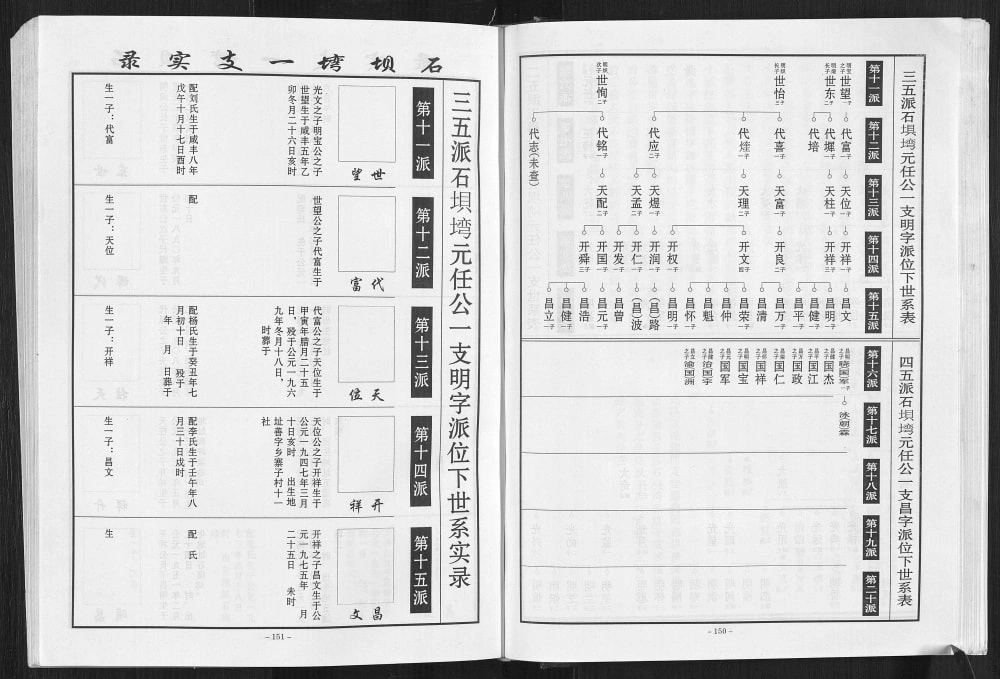 三五派石坝塆元任公一支明字派位下世系表
第十一派
明宝之子 世望 一子
明瑞长子 世东 二子
明炽长子 世怡 三子
明炽次子 世恂 二子
第十二派
代富 一子
代墀 一子
代培
代喜 一子
代烓 一子
代应 二子
代铭 一子
代志(未查)
第十三派
天位 一子
天柱 一子
天富 一子
天理 二子
天煜 一子
天孟 三子
天配 二子
第十四派
开祥 一子
开祥 三子
开良 二子
开文 四子
开权 一子
开润 一子
开仁 一子
开发 一子
开国 一子
开舜 三子
第十五派
昌文
昌明 一子
昌健 一子
昌平 一子
昌万 一子
昌清
昌荣 一子
昌仲
昌魁
昌怀 一子
昌明 一子
(昌)路
(昌)波
昌曾
昌元 一子
昌浩
昌健 一子
昌立 一子
四五派石坝塆元任公一支昌字派位下世系表
第十六派
国杰
国江
国政
国仁
国祥
国宝
国军
第十七派
第十八派
第十九派
第二十派
－150－
石坝塆一支实录
三五派石坝塆元任公一支明字派位下世系实录
第十一派
世望
光文之子明宝公之子
世望生于咸丰五年乙
卯冬月二十六日亥时
配刘氏生于咸丰八年
戊午十月十七日酉时
生一子：代富
第十二派
代富
世望公之子代富生于
配
生一子：天位
第十三派
天位
代富公之子天位生于
甲寅年腊月二十五
日，殁于公元一九六
九年冬月十八日，
时葬于
配杨氏生于癸丑年七
月初十日 殁于
年 月 日葬于
生一子：开祥
第十四派
开祥
天位公之子开祥生于
公元一九四七年三月
十日亥时 出生地
址善字乡寨子村十一
社
配李氏生于壬午年八
月三十日戌时
生一子：昌文
第十五派
昌文
开祥之子昌文生于公
元一九七五年 月
二十五日 未时
配 氏
生
－151－